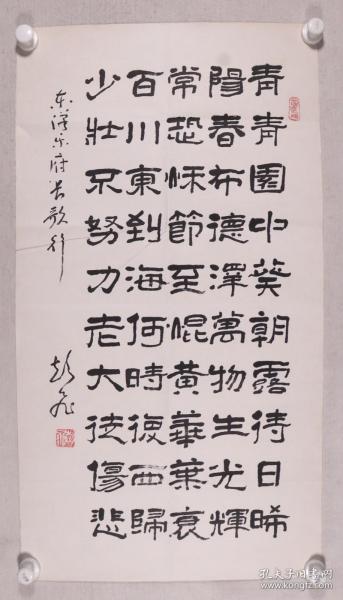 青青園中葵朝露待日晞
陽春布德澤萬物生光輝
常恐秋節至焜黃華葉衰
百川東到海何時復西歸
少壯不努力老大徒傷悲
东漢乐府长歌行
彭飞
孔夫子旧书网
www.kongfz.com